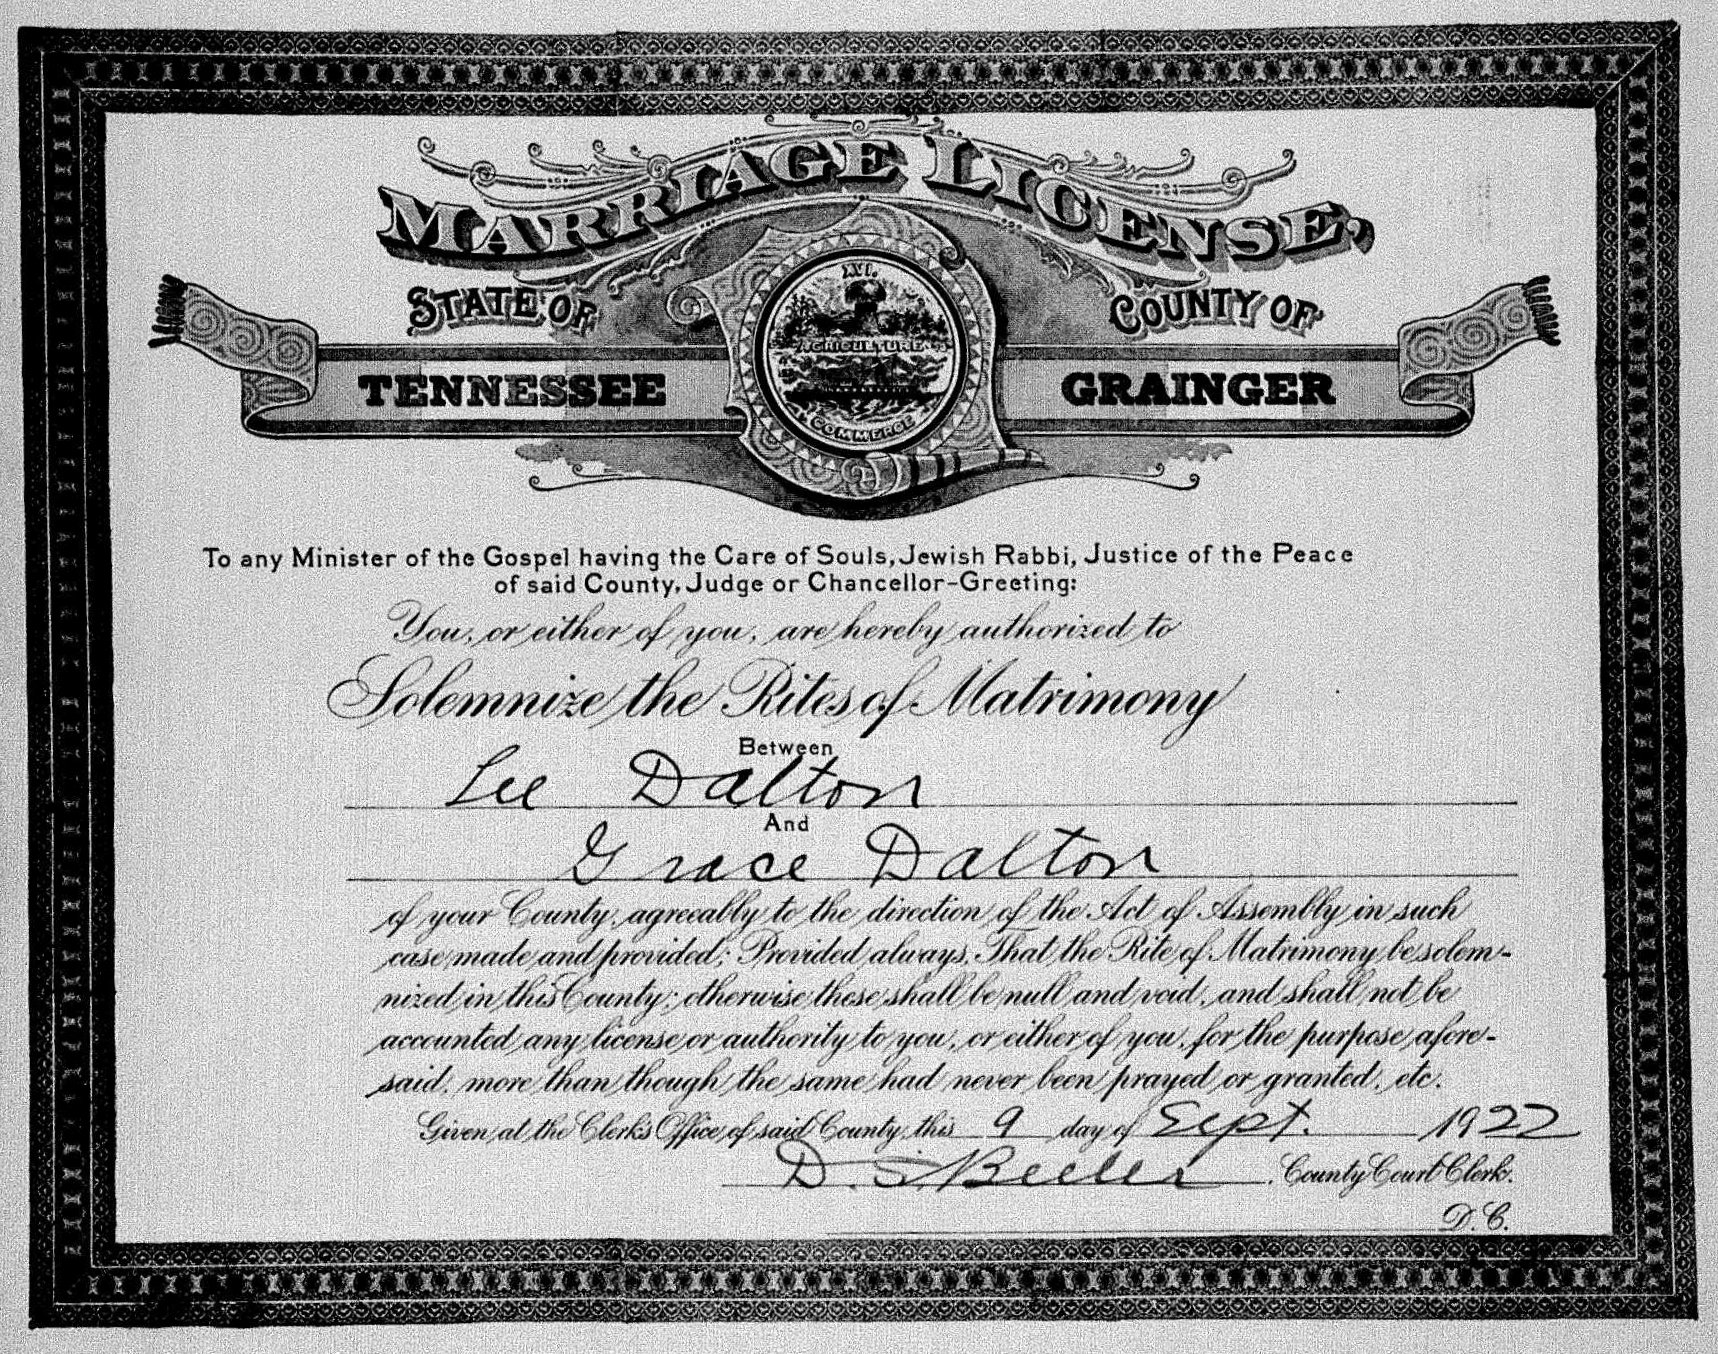 MARRIAGE LICENSE,
STATE OF
COUNTY OF
TENNESSEE
GRAINGER
XVI.
AGRICULTURE
COMMERCE
To any Minister of the Gospel having the Care of Souls, Jewish Rabbi, Justice of the Peace
of said County, Judge or Chancellor-Greeting:
You, or either of you, are hereby authorized to
Solemnize the Rites of Matrimony
Between
Lee Dalton
And
Grace Dalton
of your County, agreeably to the direction of the Act of Assembly in such
case made and provided; Provided always, That the Rite of Matrimony be solem-
nized in this County; otherwise these shall be null and void, and shall not be
accounted any license or authority to you, or either of you, for the purpose afore-
said, more than though the same had never been prayed or granted, etc.
Given at the Clerk's Office of said County, this 9 day of Sept. 1922
D. S. Beeler, County Court Clerk.
D. C.